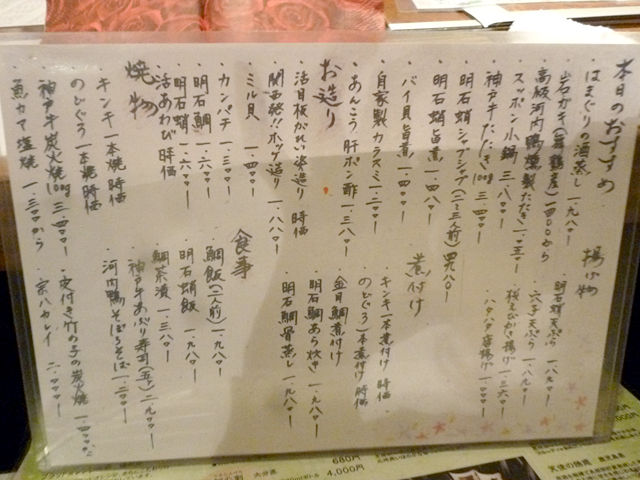 本日のおすすめ
・はまぐりの酒蒸し 一.九八〇
・岩ガキ(舞鶴産)一四〇〇から
・高級河内鴨燻製たたき 一.二五〇
・スッポン小鍋 三.八〇〇〇
・神戸牛たたき100g 三.四〇〇〇
・明石蛸シャブシャブ(二〜三人前)四九八〇
・明石蛸旨煮 一.四八〇
・バイ貝旨煮 一.四〇〇〇
・自家製カラスミ 一.二〇〇〇
・あんこう肝ポン酢 一.三八〇
お造り
・活目板がれい姿造り 時価
・関西発!!ホッケ造り 一.八八〇
・ミル貝 一.四〇〇〇
・カンパチ 一.三〇〇〇
・明石鯛 一.六〇〇〇
・明石蛸 一.六〇〇〇
・活あわび 時価
焼物
・キンキ一本焼 時価
・のどぐろ一本焼 時価
・神戸牛炭火焼100g 三.四〇〇〇
・魚カマ塩焼 一.三〇〇から
揚げ物
・明石蛸天ぷら 一.八九〇
・穴子天ぷら 一.八九〇
・桜えびかき揚げ 一.三六〇
・ハタハタ唐揚げ 一.〇〇〇
煮付け
・キンキ一本煮付け 時価
・のどぐろ一本煮付け 時価
・金目鯛煮付け
・明石鯛あら炊き 一.九八〇
・明石鯛骨蒸し 一.九八〇
食事
・鯛飯(二人前)一.九八〇
・明石蛸飯 一.九八〇
・鯛茶漬 一.三八〇
・神戸牛あぶり寿司(五ケ)二.九〇〇〇
・河内鴨そぼろそば 一.二〇〇〇
・皮付き竹の子の炭火焼 一.四〇〇
・宗八カレイ 二.〇〇〇
680円
大分県
4,000円
天使の誘惑 鹿児島産